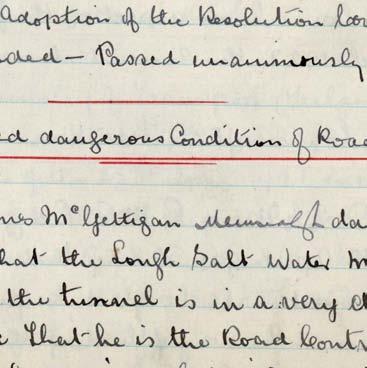 Adoption of the Resolution
ded — Passed unanimously
ed dangerous Condition of Road
nes McGettigan
hat the Lough Salt Water
the tunnel is in a very
That he is the Road Contr